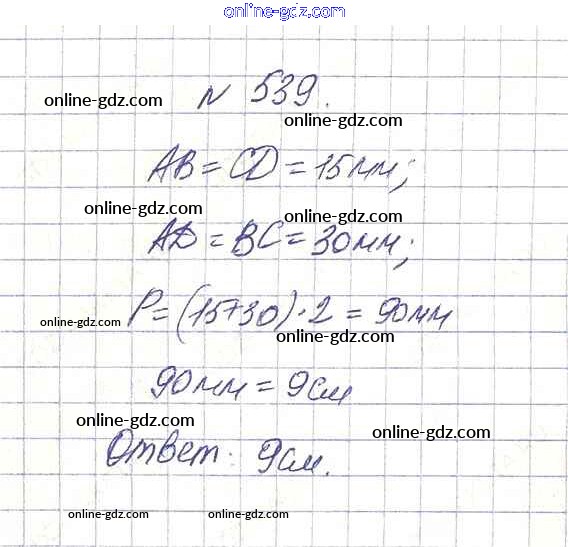 online-gdz.com
№ 539.
online-gdz.com
online-gdz.com
AB = CD = 15 мм;
online-gdz.com
online-gdz.com
AD = BC = 30 мм;
P = (15+30) · 2 = 90 мм
online-gdz.com
online-gdz.com
90 мм = 9 см
online-gdz.com
online-gdz.com
Ответ: 9 см.
online-gdz.com
online-gdz.com